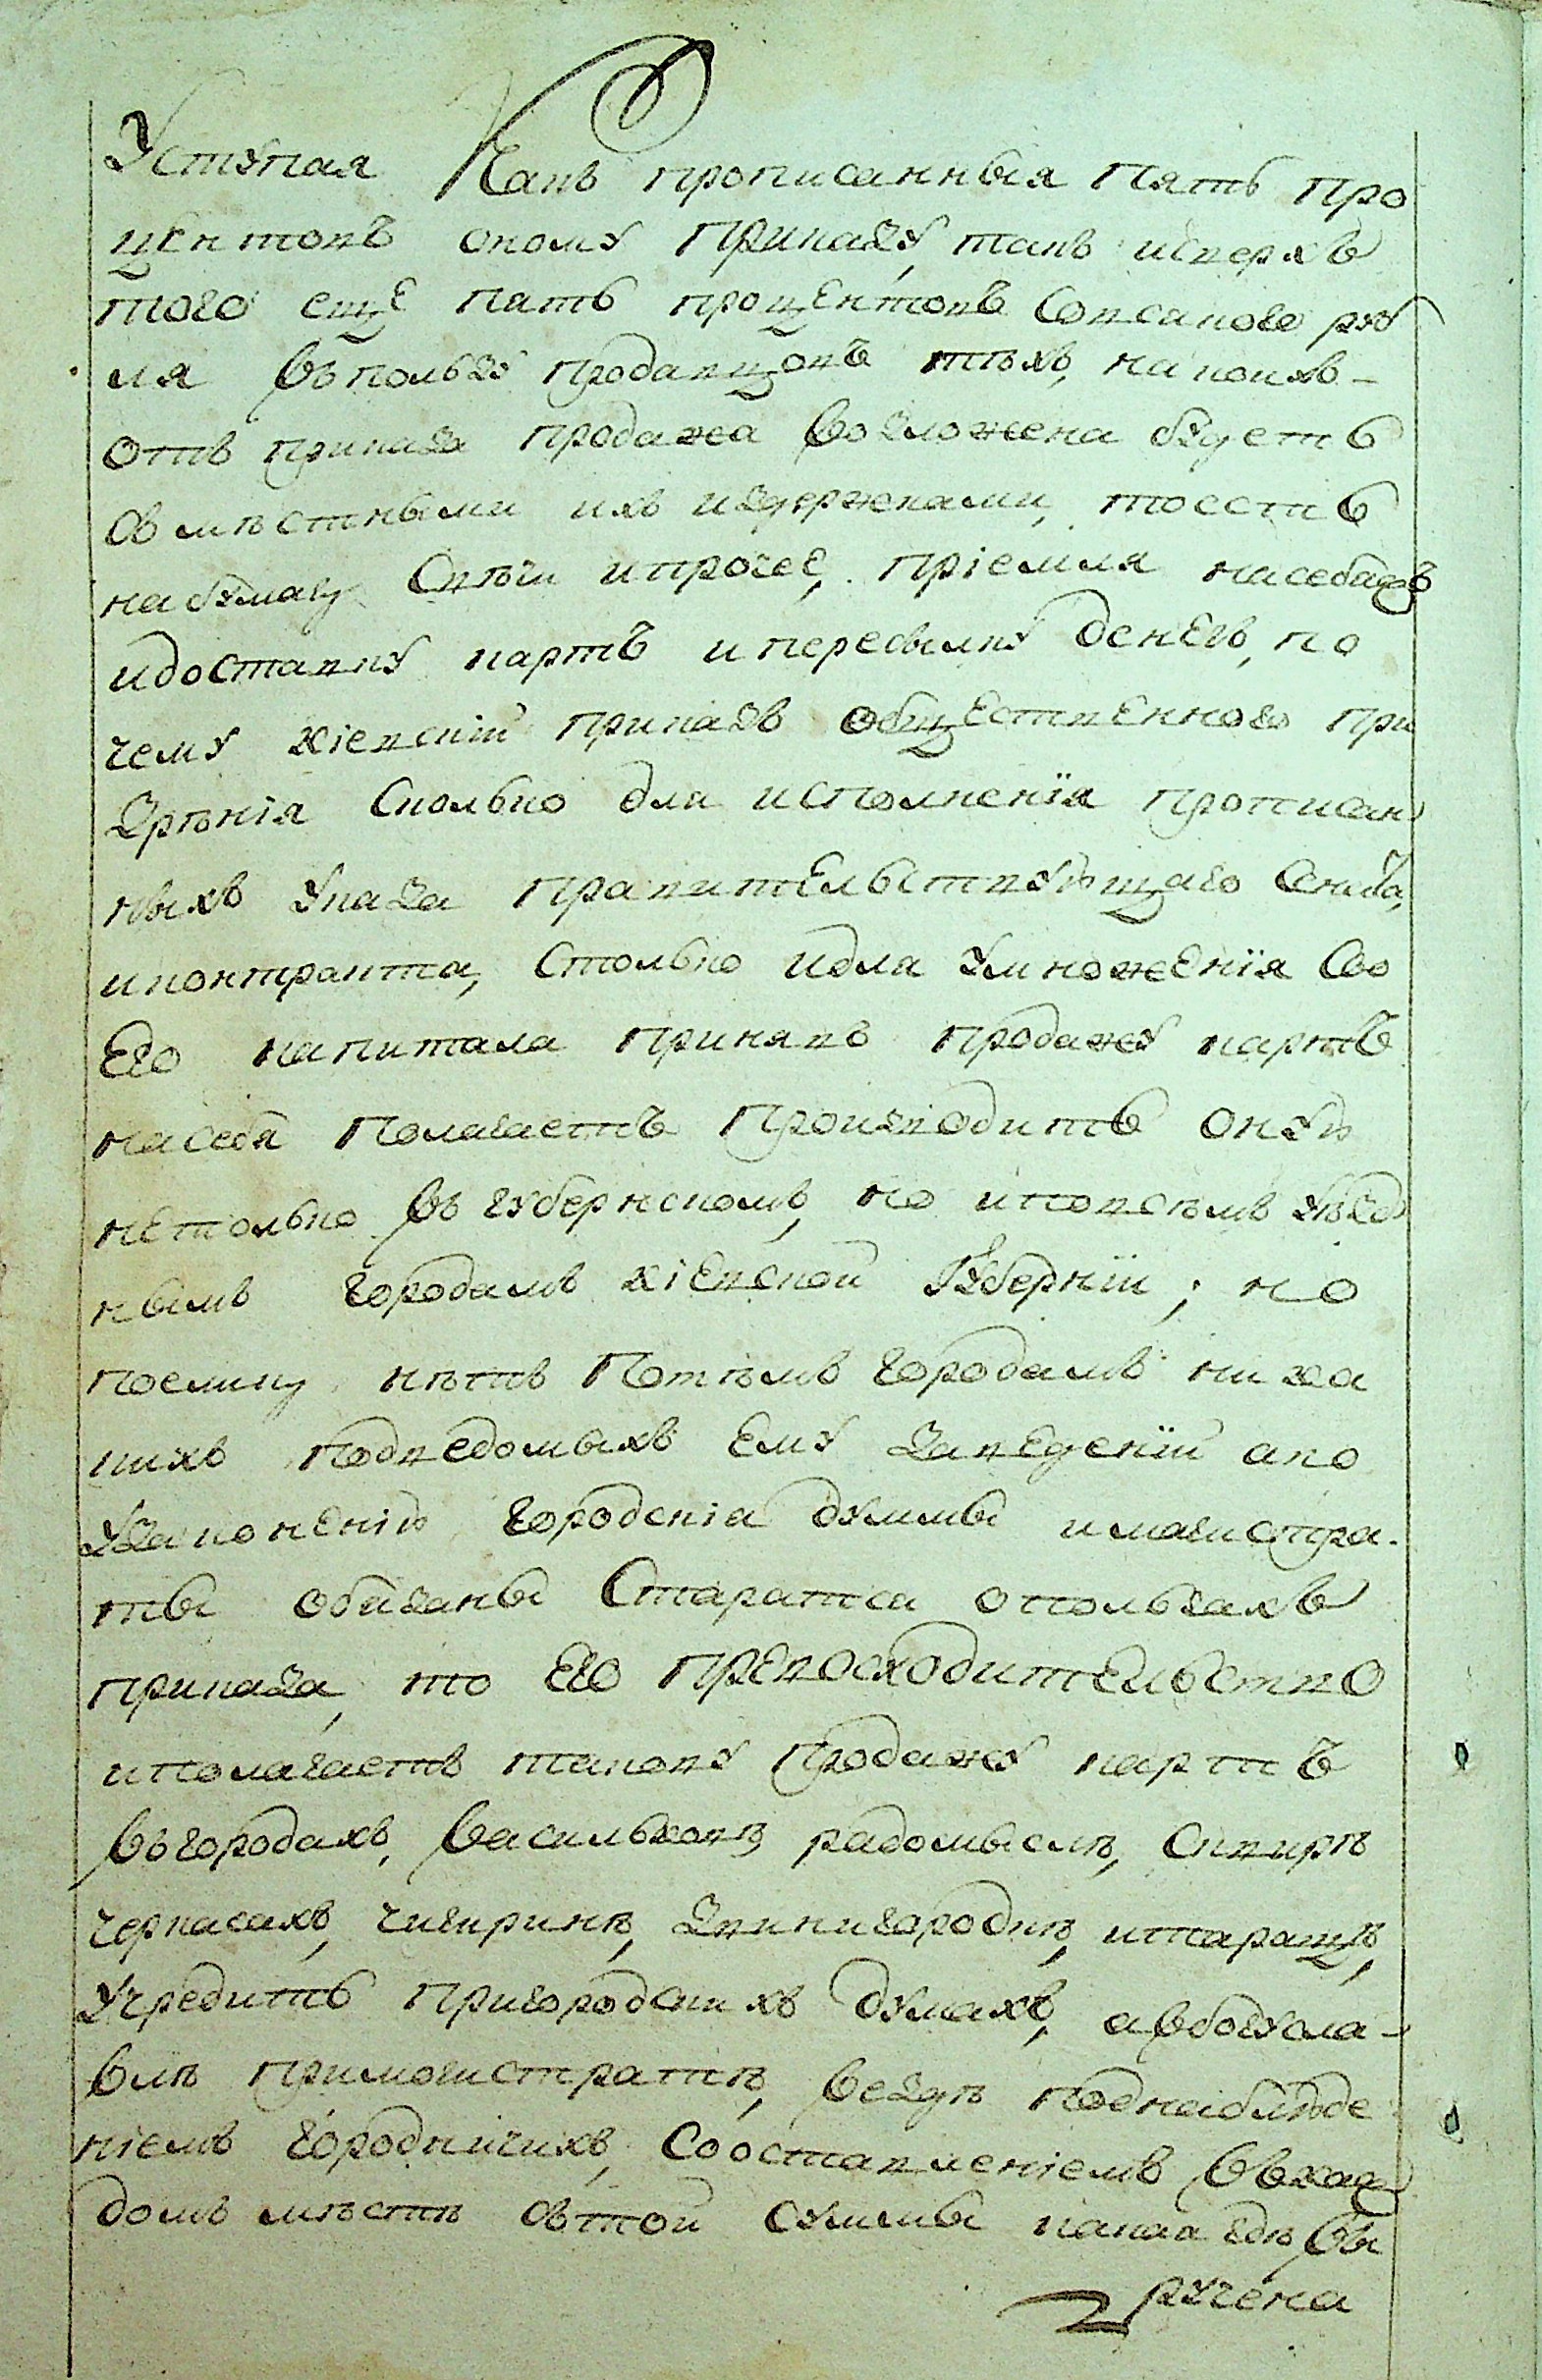 Уступая Какъ прописанныя Пять про
центовъ оному Приказу, такъ исверхъ
того еще пять процентовъ Совсаково руб
ля въпользу продавцовъ тѣхъ, на коихъ
отъ приказа продажа возложена будетъ
Съ мѣстными ихъ издержками, тоесть
на бумагу Свѣчи ипрочее, пріемля насебя
идоставку картъ ипересылку денегъ, по
чему кіевскій приказъ общественного при
зрѣнія Сколько для исполненія прописан
ныхъ Указа Правительствующаго Сената,
иконтракта, Столько идля умноженія Сво
его капитала принявъ продажу картъ
насебя Полагаетъ Производить оную
нетолько въ губернскомъ, но иповсѣмъ уѣзд
нымъ городамъ кіевской Губерніи; но
поелику нѣтъ Потѣмъ городамъ ника
кихъ подведомыхъ ему заведеній апо
узаконенію городскія думмы имагистра
ты обязаны Старатся опользахъ
приказа, то Его Превосходительство
иполагаетъ таковую Продажу картъ
въгородахъ, васильковѣ, радомыслѣ, Сквирѣ
черкасахъ, чигиринѣ, Звинигородкѣ, итаращѣ,
учредить Пригородскихъ думахъ, авбогусла
влѣ примагистратѣ, везде поднаблюде
ніемъ городничихъ, Сооставленіемъ въкаж
домъ мѣстѣ отъ той суммы какая гдѣ вы
ручена